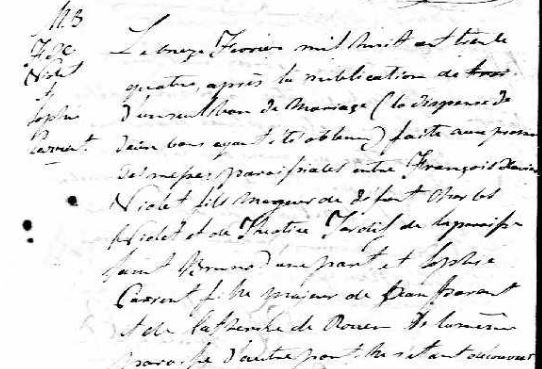 M 3
F. Xe
Violet
&
Sophie
Parent
Le onze Fevrier mil huit cent trente
quatre, après la publication de
d'un seul ban de Mariage (la dispense de
deux bans ayant été obtenue) faite au prone
des messes paroissiales entre François Xavier
Violet fils majeur de défunt Charles
Violet et de Tardif de la paroisse
Saint d'une part et Sophie
Parent fille majeur de Jean Parent
et de Catherine de Rouen de la même
paroisse d'autre part ne s'étant découvert